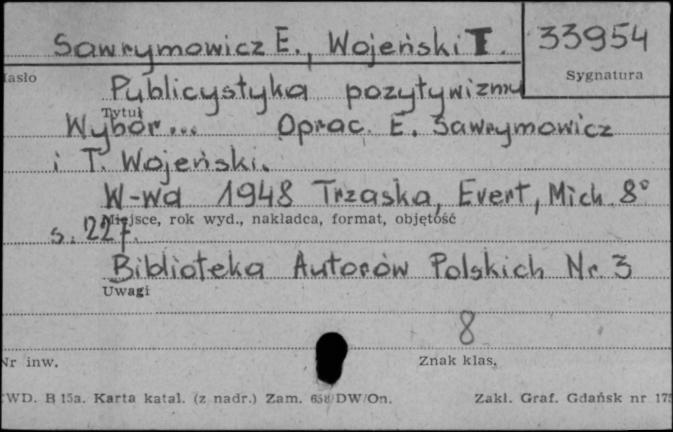 Sawrymowicz E., Wojeński T. 33954
Hasło
Sygnatura
Publicystyka pozytywizmu
Tytuł
Wybór... Oprac. E. Sawrymowicz
i T. Wojeński.
W-wa 1948 Trzaska, Evert, Mich. 8°
Miejsce, rok wyd., nakładca, format, objętość
s. 227.
Biblioteka Autorów Polskich Nr. 3
Uwagi
8
Nr inw.
Znak klas.
WD. B 15a. Karta katal. (z nadr.) Zam. 658/DW/On. Zakł. Graf. Gdańsk nr 175